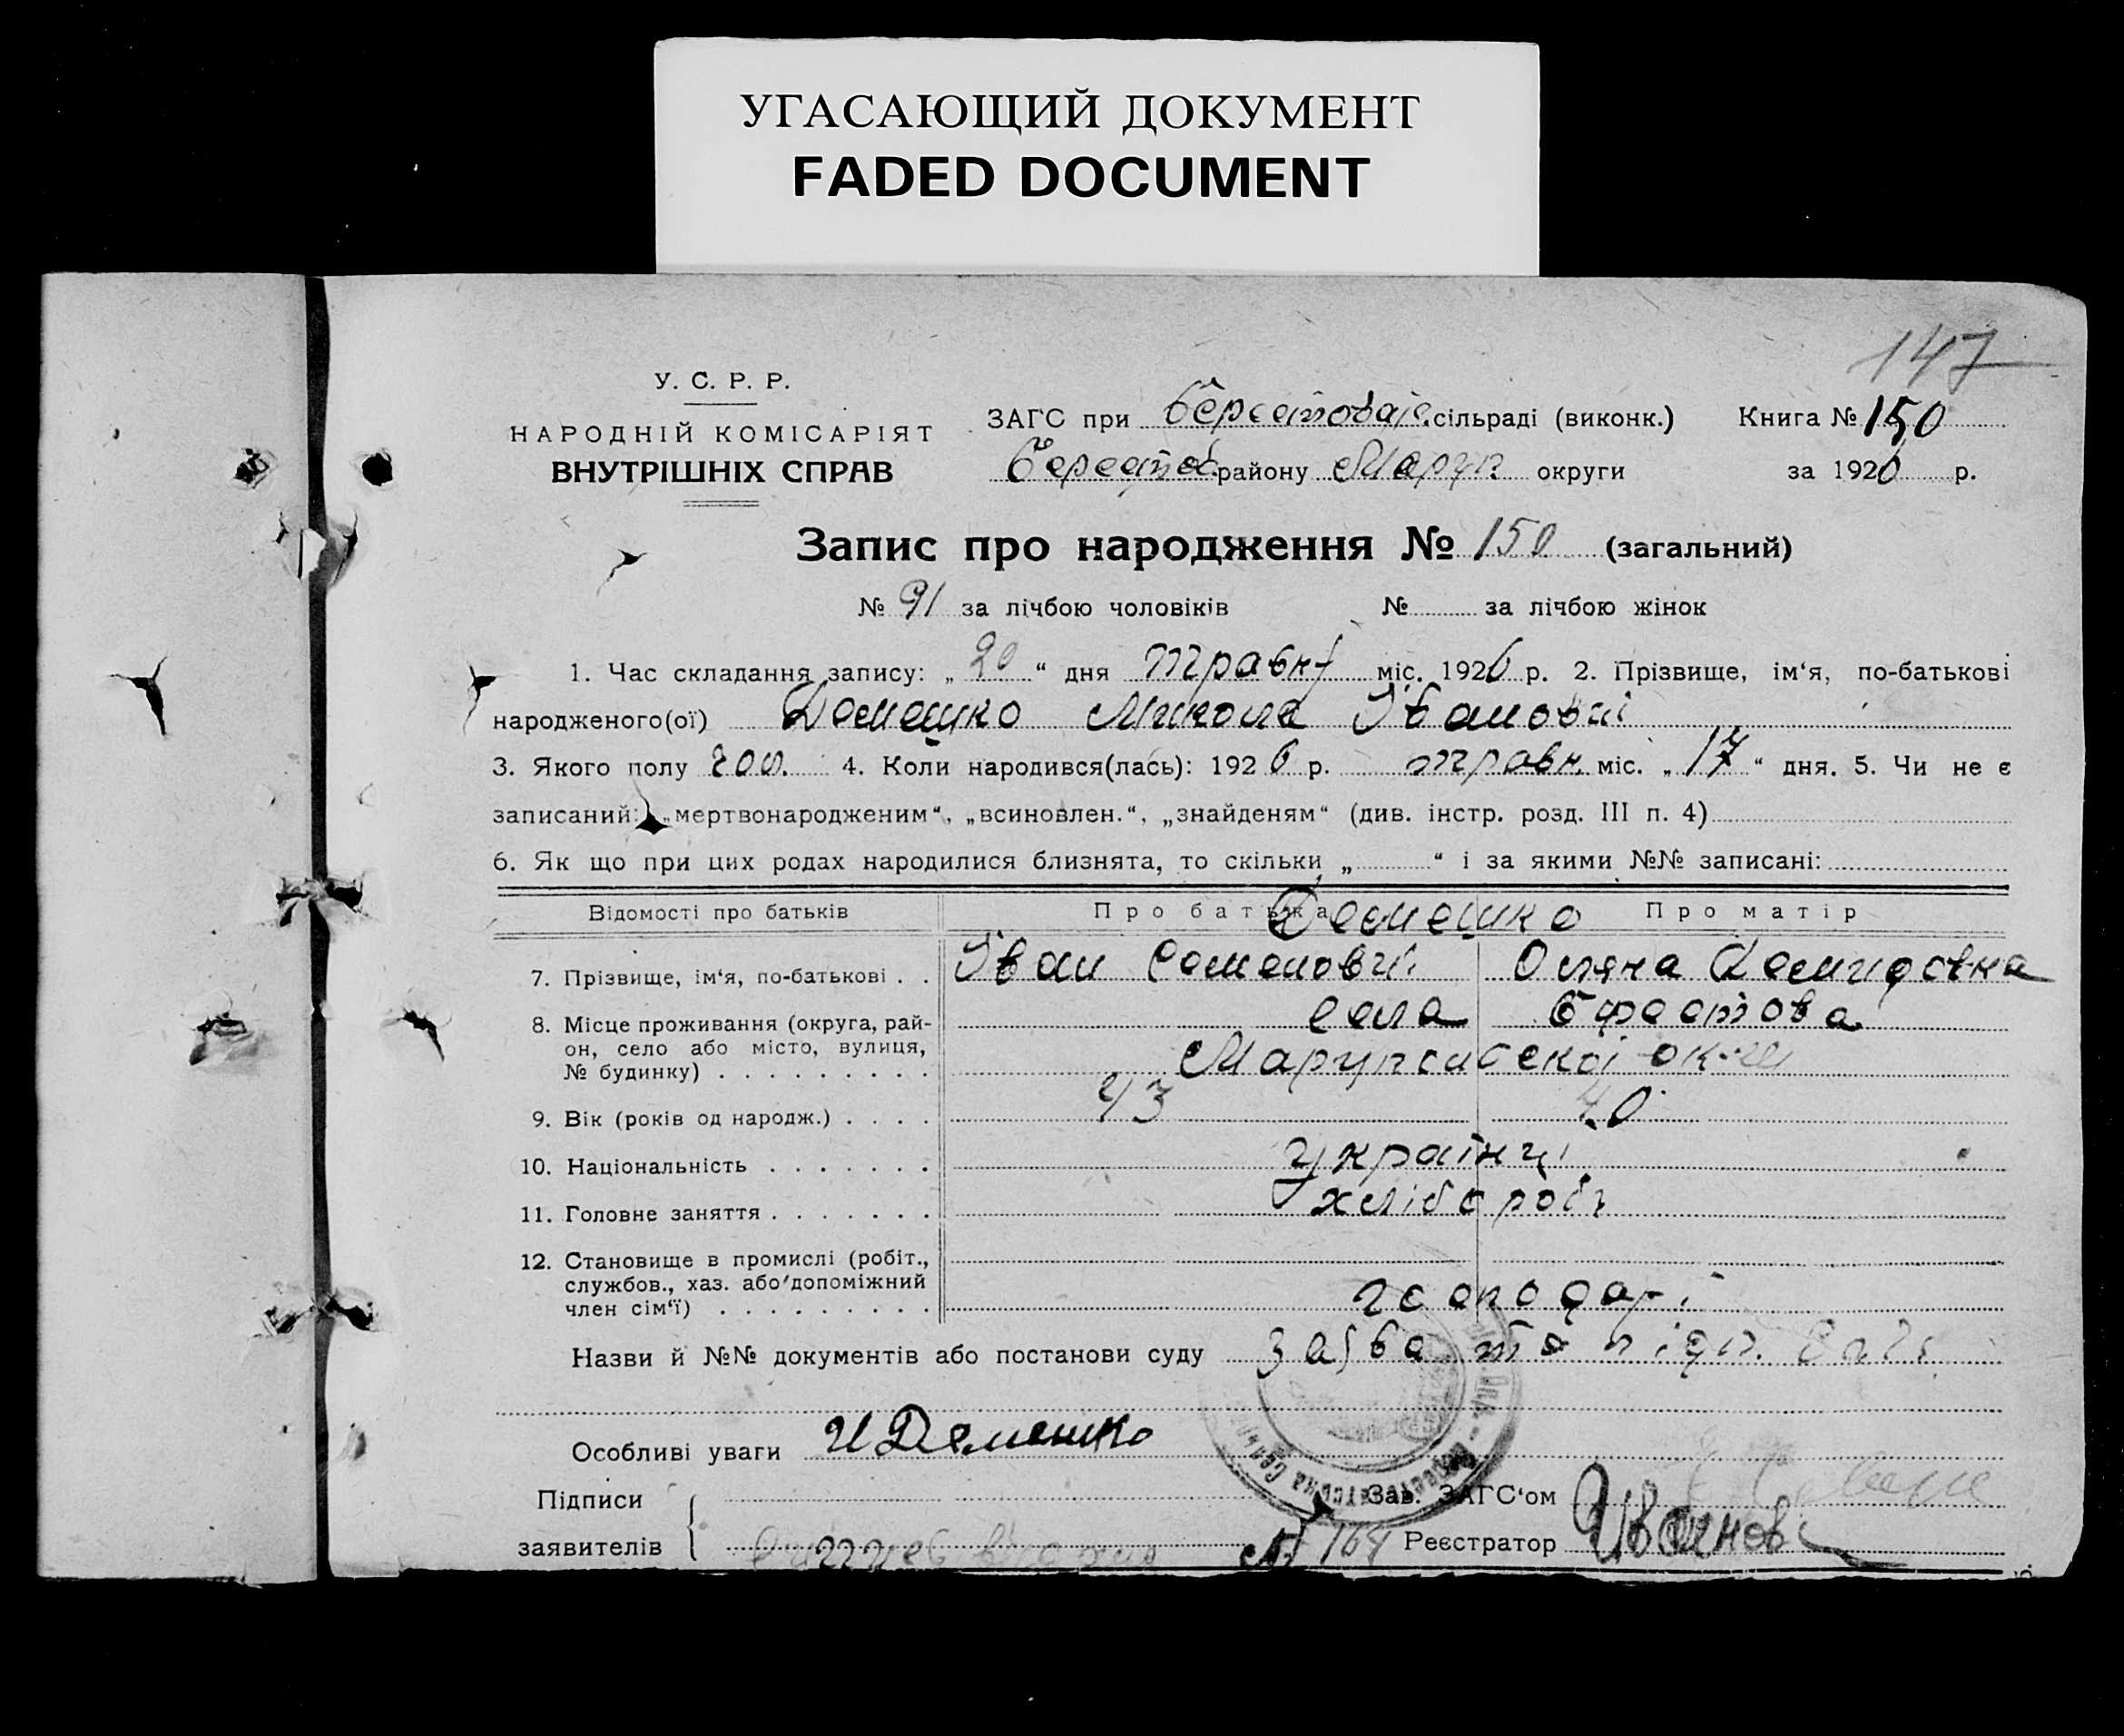 УГАСАЮЩИЙ ДОКУМЕНТ
FADED DOCUMENT
147
У. С. Р. Р.
НАРОДНІЙ КОМІСАРІЯТ
ВНУТРІШНІХ СПРАВ
ЗАГС при сільраді (виконк.) Книга № 150
району Маріуп округи за 1926 р.
Запис про народження № 150 (загальний)
№ 91 за лічбою чоловіків № за лічбою жінок
1. Час складання запису: „20“ дня травня міс. 1926 р. 2. Прізвище, ім‘я, по-батькові
народженого(ої) Демешко Микола Іванович
3. Якого полу чол. 4. Коли народився(лась): 1926 р. травн. міс. „17“ дня. 5. Чи не є
записаний: „мертвонародженим“, „всиновлен.“, „знайденям“ (див. інстр. розд. III п. 4)
6. Як що при цих родах народилися близнята, то скільки „ “ і за якими №№ записані:
Відомості про батьків Про батька Про матір
Демешко
7. Прізвище, ім‘я, по-батькові . . Іван Семенович Оляна Демидовна
8. Місце проживання (округа, рай-
он, село або місто, вулиця,
№ будинку) . . . . . . . . .
села Берестова
Маріупільської
9. Вік (років од народж.) . . . . 43 40
10. Національність . . . . . . . українці
11. Головне заняття . . . . . . . хлібороби
12. Становище в промислі (робіт.,
службов., хаз. або допоміжний
член сім‘ї) . . . . . . . . .
господарі
Назви й №№ документів або постанови суду заява та підп.
Особливі уваги И Демешко
Підписи
заявителів
Зав. ЗАГС‘ом
№ 168 Реєстратор Иванов